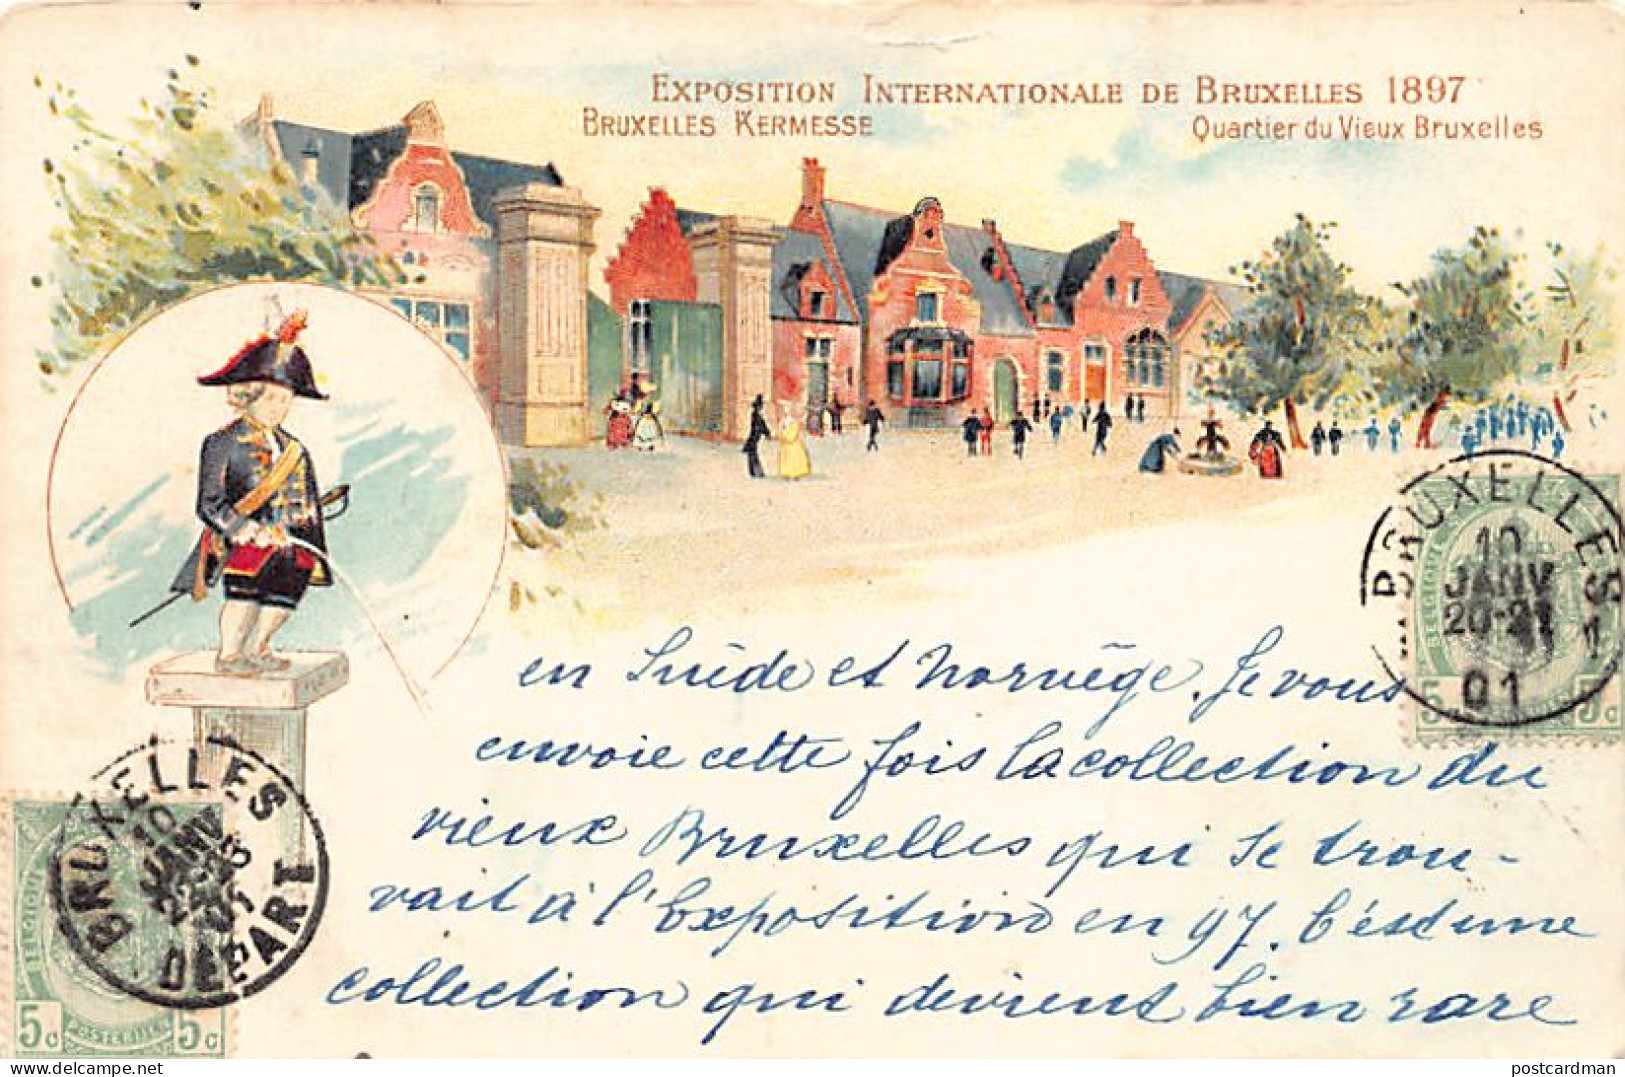 EXPOSITION INTERNATIONALE DE BRUXELLES 1897
BRUXELLES KERMESSE
Quartier du Vieux Bruxelles
BRUXELLES 1
10
JANV
20-21
01
BELGIQUE
5c 5c
en Suède et Norvège. Je vous
envoie cette fois la collection du
vieux Bruxelles qui se trou-
vait à l'Exposition en 97. C'est une
collection qui devient bien rare
BRUXELLES
10
JANV
DEPART
BELGIQUE
5c POSTERIJEN 5c
postcardman